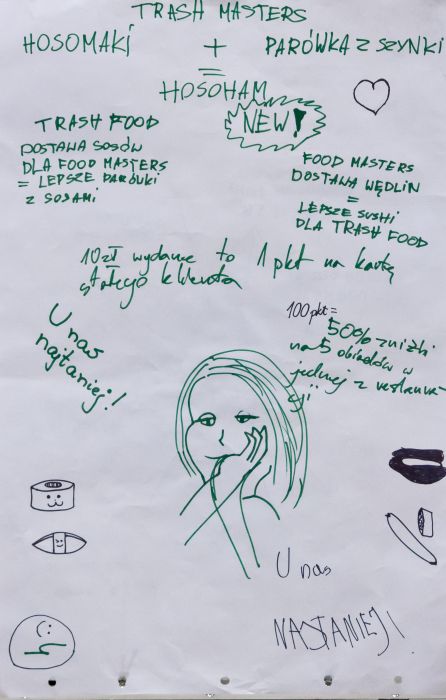 TRASH MASTERS
HOSOMAKI + PARÓWKA Z SZYNKI
=
HOSOHAM
NEW!
TRASH FOOD
DOSTAWA SOSÓW
DLA FOOD MASTERS
= LEPSZE PARÓWKI
Z SOSAMI
FOOD MASTERS
DOSTAWA WĘDLIN
=
LEPSZE SUSHI
DLA TRASH FOOD
10zł wydane to 1 pkt na kartę
stałego klienta
100pkt =
50% zniżki
na 5 obiadów w
jednej z restaura-
cji
U nas
najtaniej!
U nas
NASTANIEJ!